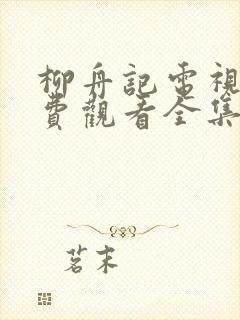 柳舟記電視
費觀看全集
茗末